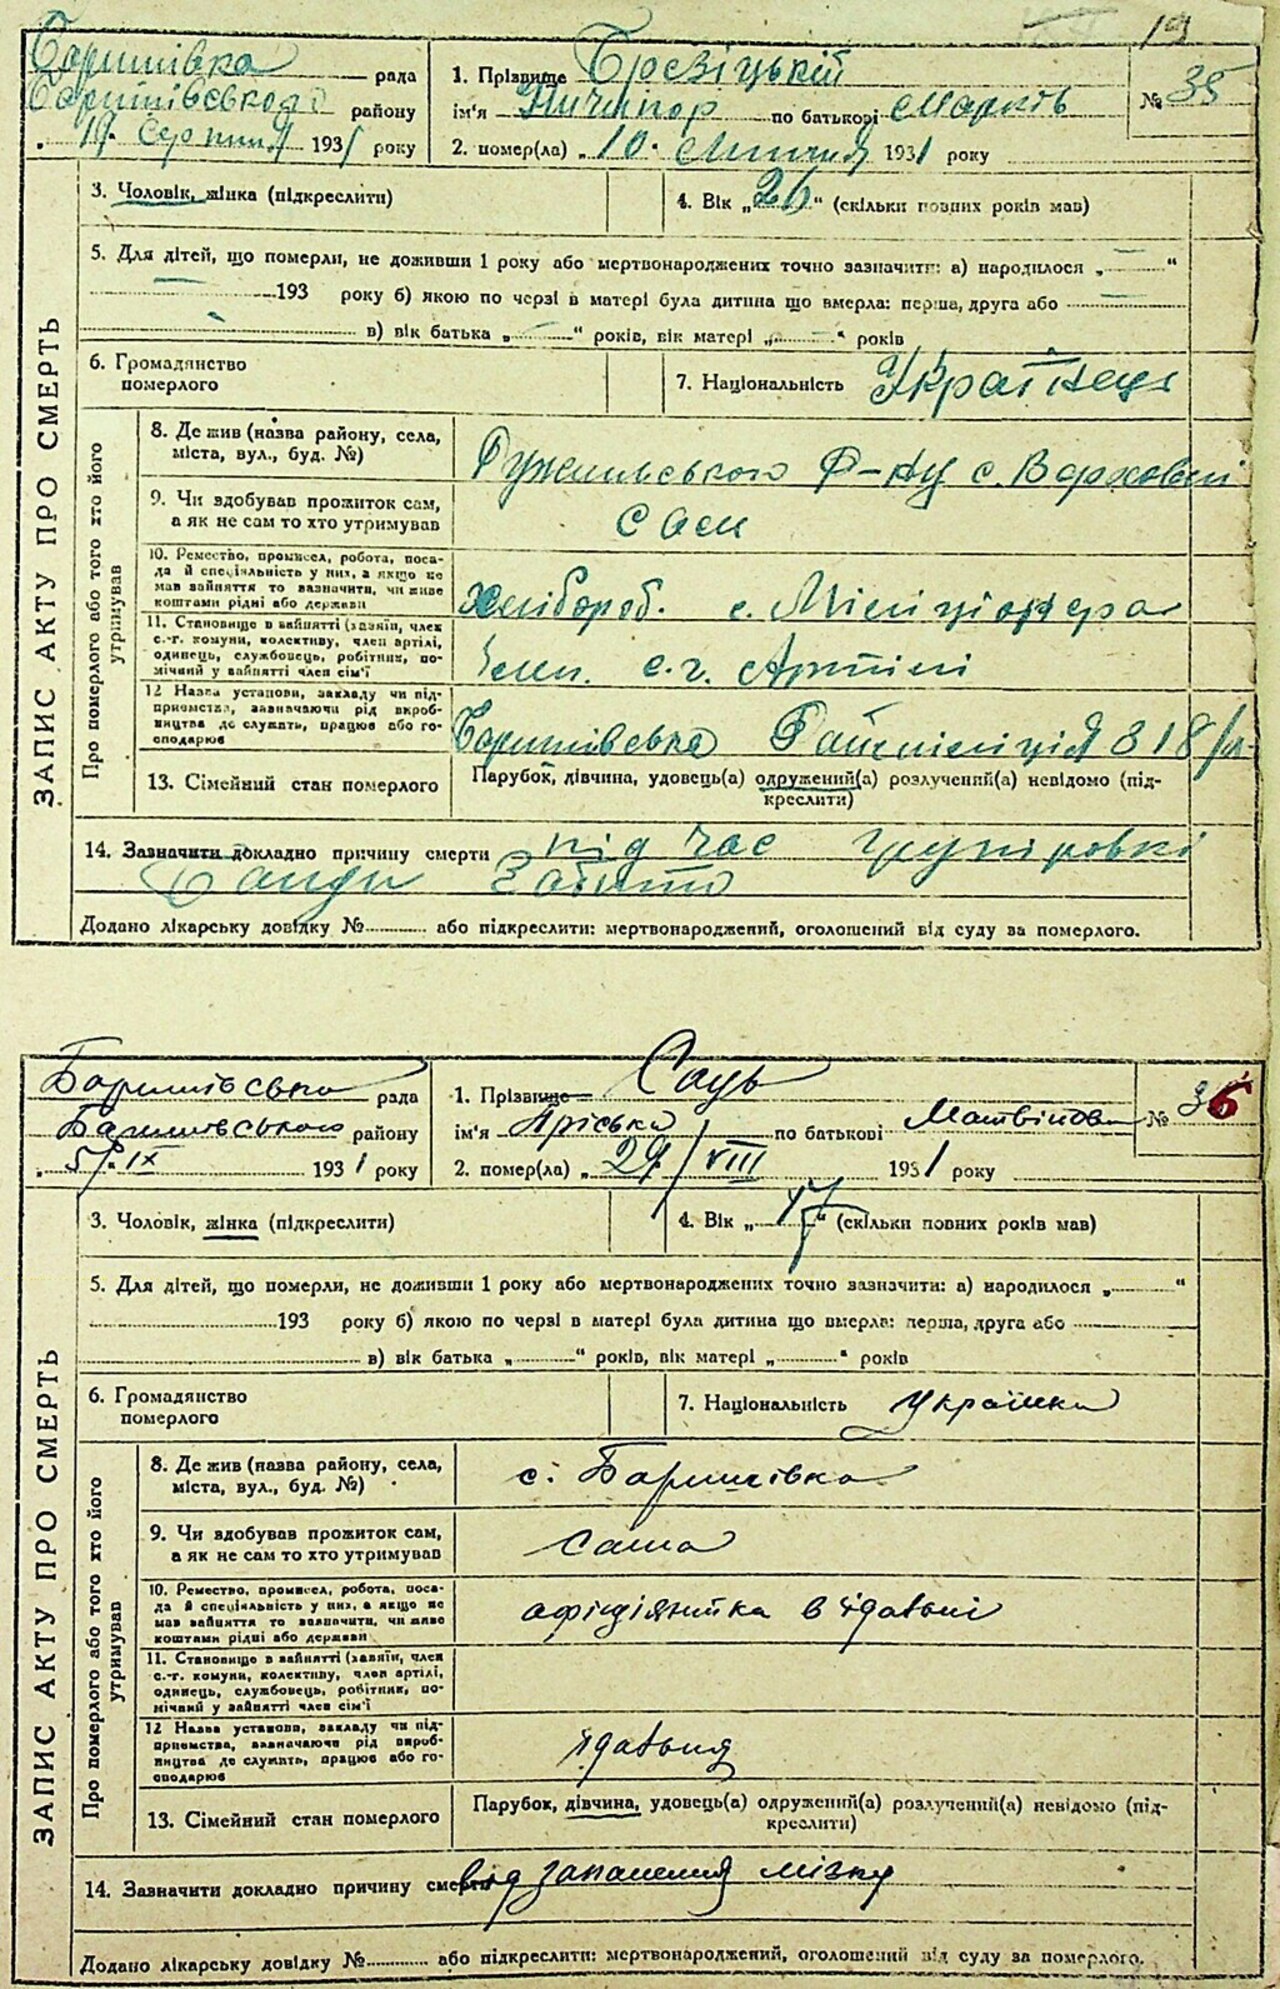 19
Баришівка рада
Баришівського району
„ 19. Серпня 1931 року
1. Прізвище Брезіцький
ім'я Ничипор по батькові Марків
2. помер(ла) „ 10. Липня 1931 року
№ 35
3. Чоловік, жінка (підкреслити)
4. Вік „26“ (скільки повних років мав)
5. Для дітей, що померли, не доживши 1 року або мертвонароджених точно зазначити: а) народилося „ — “
— 193 року б) якою по черзі в матері була дитина що вмерла: перша, друга або —
в) вік батька „ — “ років, вік матері „ — “ років
ЗАПИС АКТУ ПРО СМЕРТЬ
6. Громадянство
померлого
7. Національність Українець
Про померлого або того хто його
утримував
8. Де жив (назва району, села,
міста, вул., буд. №)
Ружинського Р-ну с. Верховні
9. Чи здобував прожиток сам,
а як не сам то хто утримував
Сам
10. Ремество, промисел, робота, поса-
да й спеціяльність у них, а якщо не
мав зайняття то зазначити, чи живе
коштами рідні або держави
хлібороб. с. Міліціонера
11. Становище в зайнятті (хазяїн, член
с.-г. комуни, колективу, член артілі,
одинець, службовець, робітник, по-
мічний у зайнятті член сім'ї
Член. с.г. Артілі
12 Назва установи, закладу чи під-
приємства, зазначаючи рід вироб-
ництва де служить, працює або го-
сподарює
Баришівська Райміліція
13. Сімейний стан померлого
Парубок, дівчина, удовець(а) одружений(а) розлучений(а) невідомо (під-
креслити)
14. Зазначити докладно причину смерти під час групіровкі
Банди Забито
Додано лікарську довідку № або підкреслити: мертвонароджений, оголошений від суду за померлого.
Баришівська рада
Баришівського району
„ 5/IX 1931 року
1. Прізвище Саць
ім'я Пріська по батькові Матвіївна
2. помер(ла) „ 29/VIII 1931 року
№ 36
3. Чоловік, жінка (підкреслити)
4. Вік „17“ (скільки повних років мав)
5. Для дітей, що померли, не доживши 1 року або мертвонароджених точно зазначити: а) народилося „ “
193 року б) якою по черзі в матері була дитина що вмерла: перша, друга або
в) вік батька „ “ років, вік матері „ “ років
ЗАПИС АКТУ ПРО СМЕРТЬ
6. Громадянство
померлого
7. Національність українка
Про померлого або того хто його
утримував
8. Де жив (назва району, села,
міста, вул., буд. №)
с. Баришівка
9. Чи здобував прожиток сам,
а як не сам то хто утримував
сама
10. Ремество, промисел, робота, поса-
да й спеціяльність у них, а якщо не
мав зайняття то зазначити, чи живе
коштами рідні або держави
афіціянтка в їдальні
11. Становище в зайнятті (хазяїн, член
с.-г. комуни, колективу, член артілі,
одинець, службовець, робітник, по-
мічний у зайнятті член сім'ї
12 Назва установи, закладу чи під-
приємства, зазначаючи рід вироб-
ництва де служить, працює або го-
сподарює
їдальня
13. Сімейний стан померлого
Парубок, дівчина, удовець(а) одружений(а) розлучений(а) невідомо (під-
креслити)
14. Зазначити докладно причину смерти від запалення мізку
Додано лікарську довідку № або підкреслити: мертвонароджений, оголошений від суду за померлого.